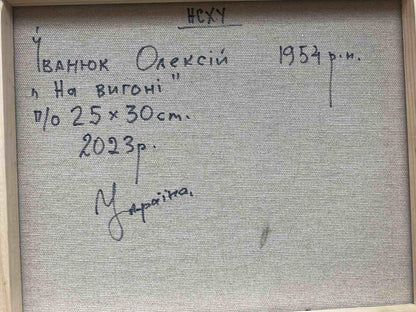 НСХУ
Іванюк Олексій 1954 р.н.
„На вигоні"
п/о 25×30 ст.
2023р.
Україна.